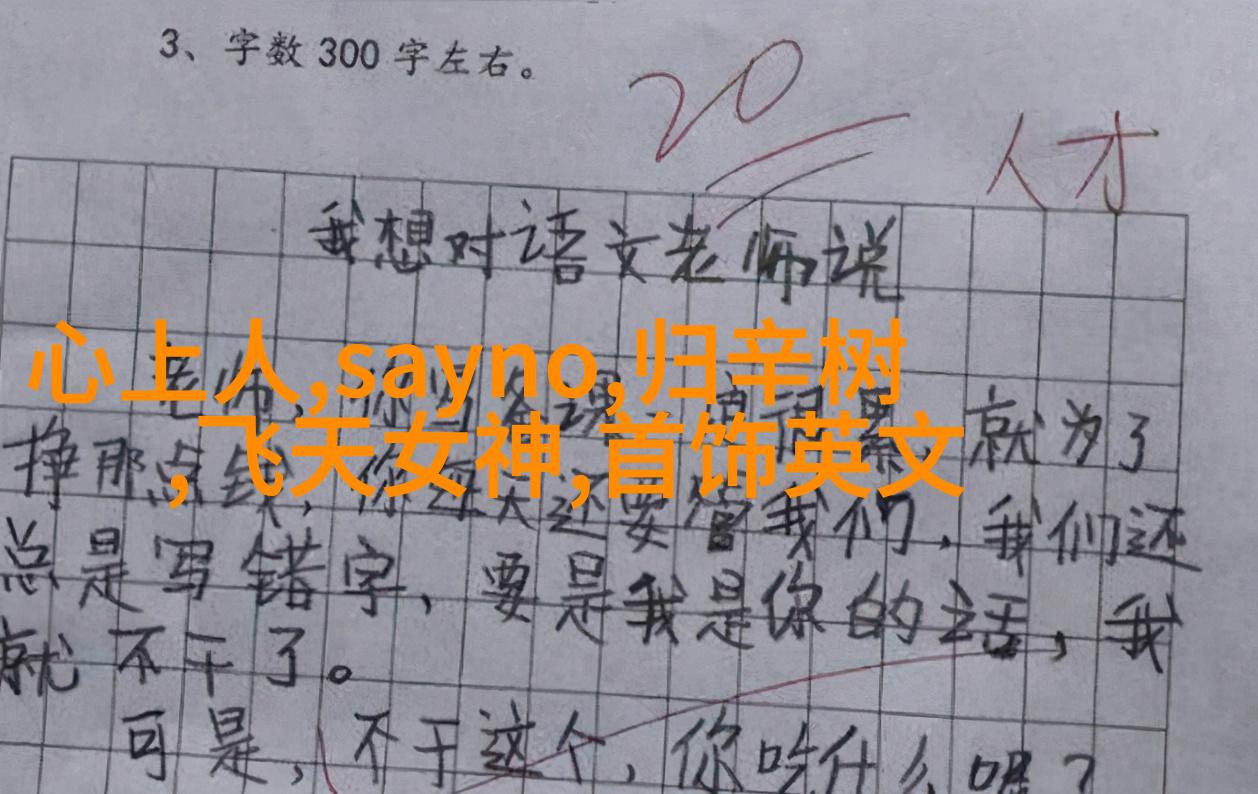 3、字数300字左右。
20
人才
我想对语文老师说
心上人,sayno,归辛树
,飞天女神,首饰英文
老师,你 就为了
挣那点钱,你每天还要管我们,我们还
总是写错字,要是我是你的话,我
就不干了。
可是,不干这个,你吃什么呢?